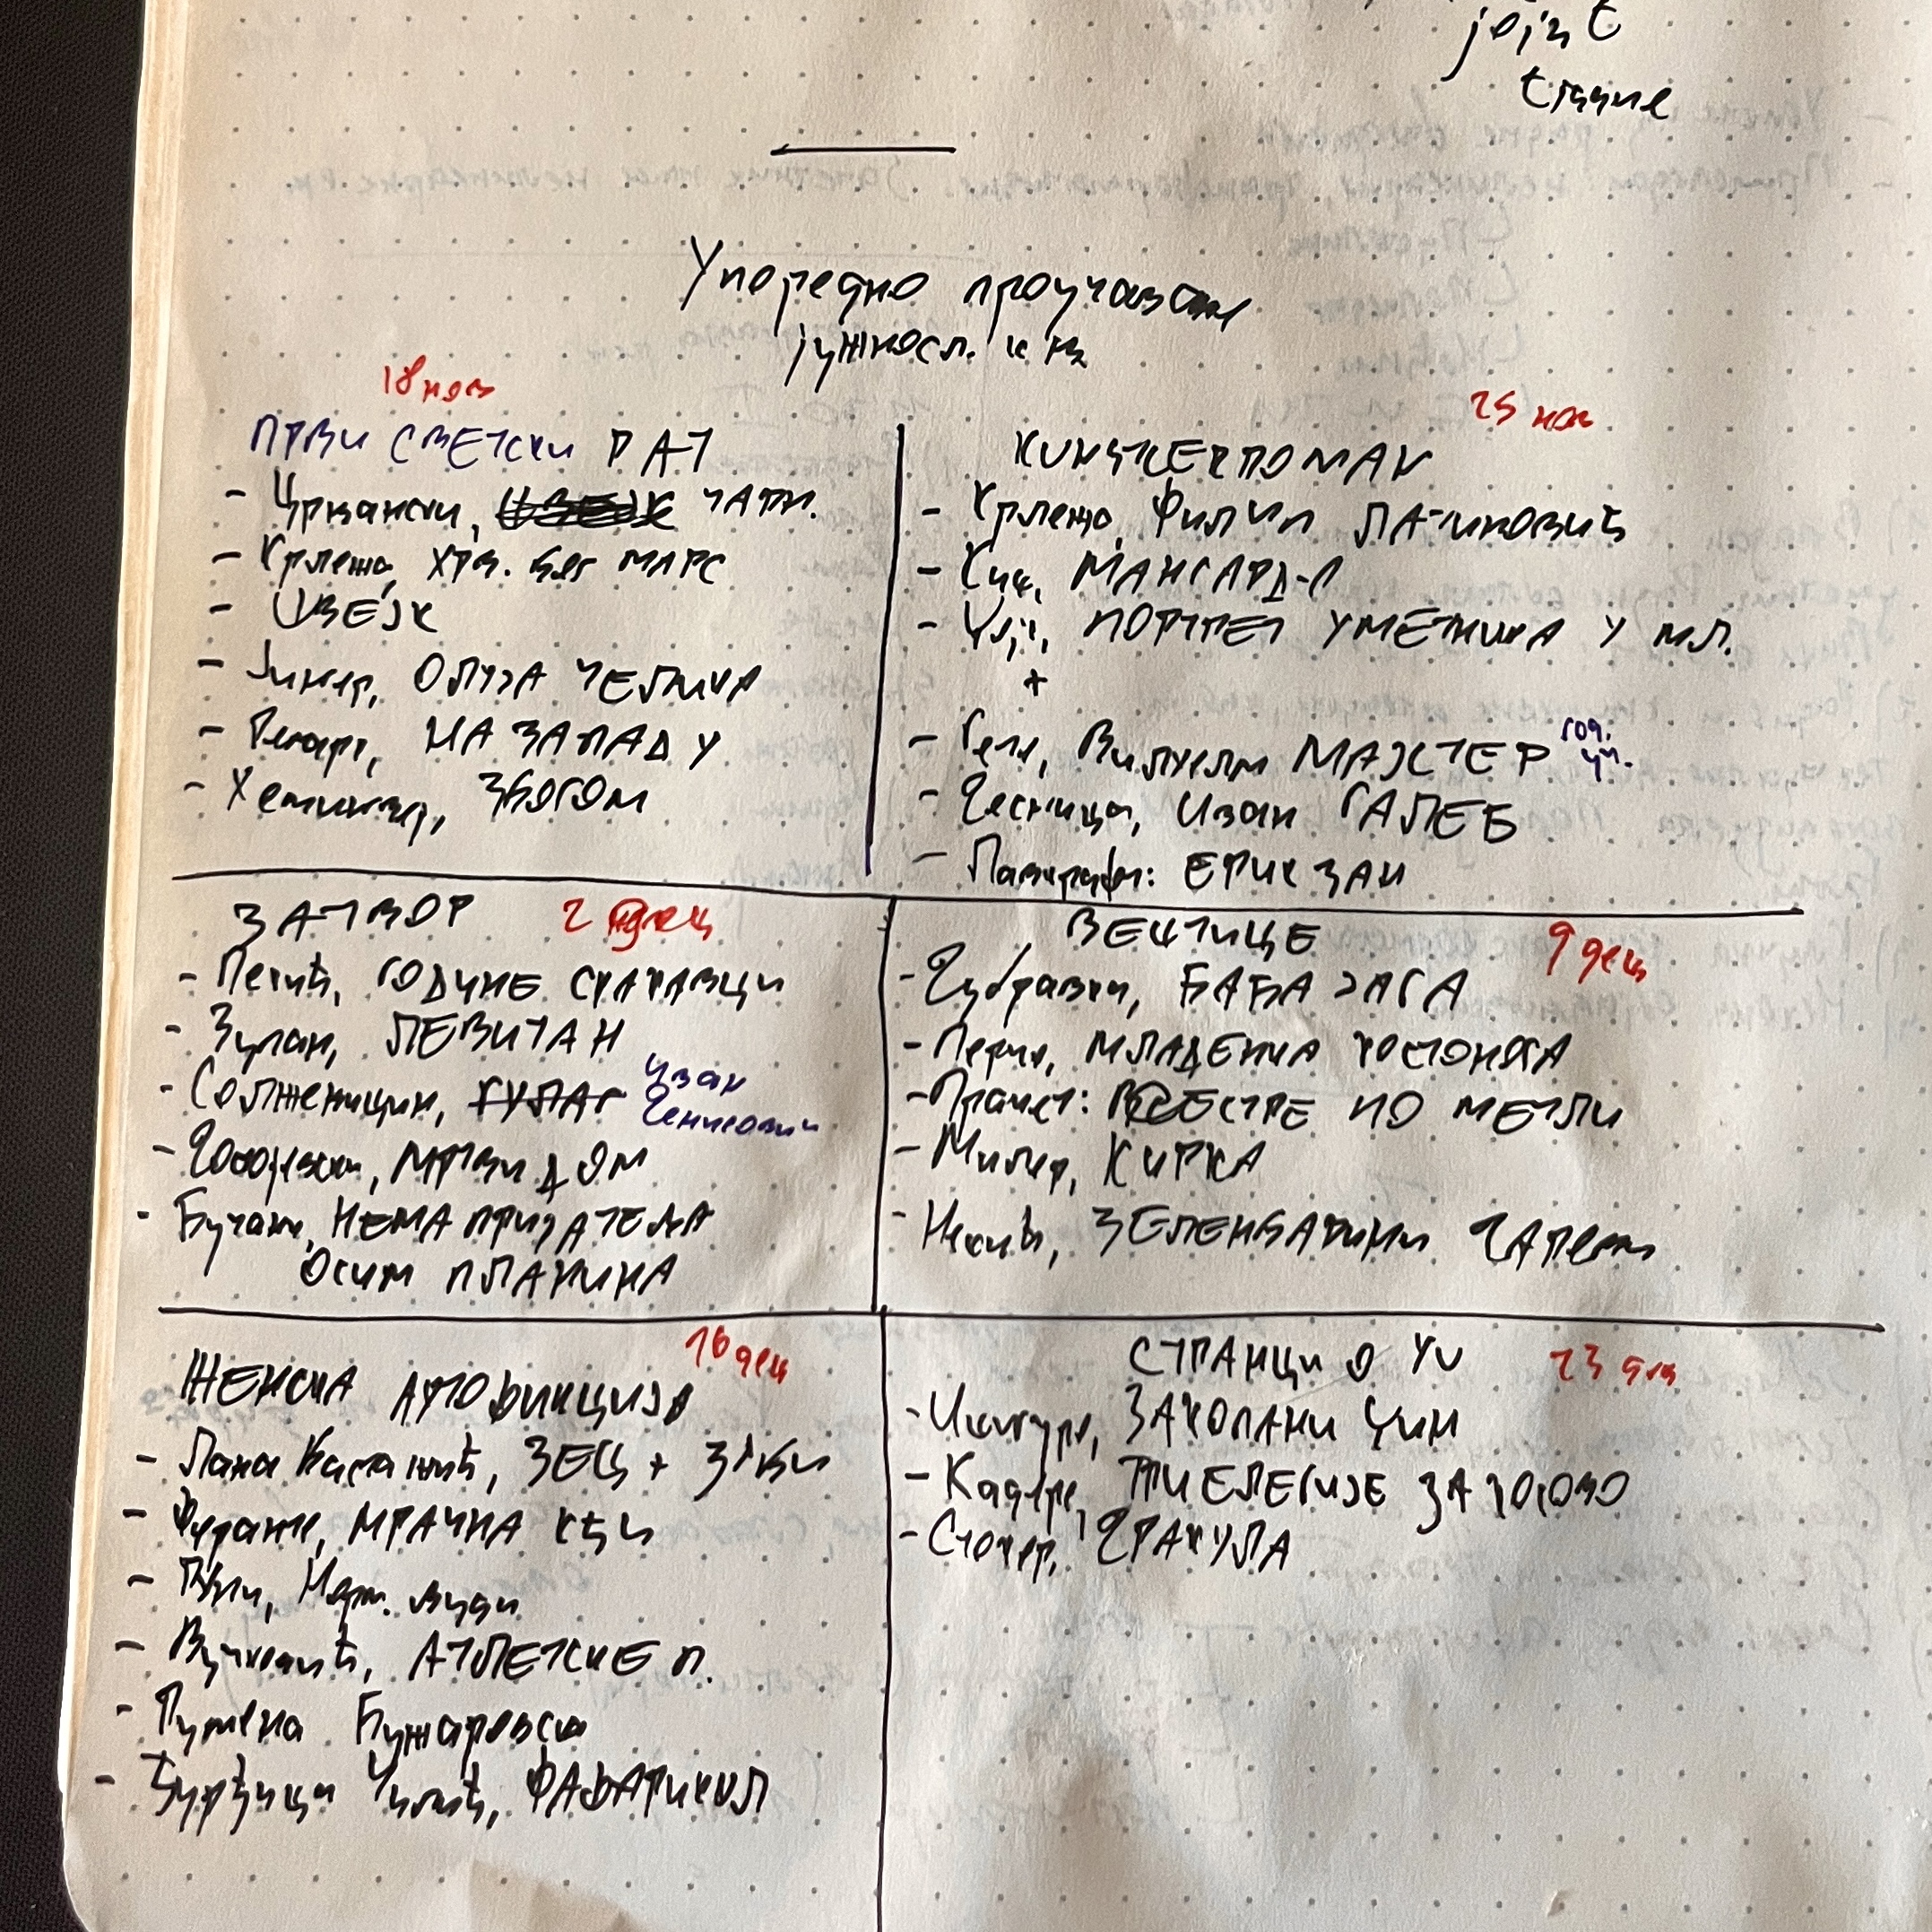 joint
Упоредно проучавање
јужносл. књ
18 нов
ПРВИ СВЕТСКИ РАТ
- Црњански, ЧАРН.
- Крлежа, ХРВ. БОГ МАРС
- ШВЕЈК
- Јингер, ОЛУЈА ЧЕЛИКА
- Ремарк, НА ЗАПАДУ
- Хемингвеј, ЗБОГОМ
25 нов
КИНСТЛЕРРОМАН
- Крлежа, ФИЛИП ЛАТИНОВИЋ
- Киш, МАНСАРДА
- Џојс, ПОРТРЕТ УМЕТНИКА У МЛ.
+
- Гете, Вилхелм МАЈСТЕР год. уч.
- Десница, Иван ГАЛЕБ
- Лавкрафт: ЕРИК ЗАН
ЗАТВОР
2 дец
- Пекић, ГОДИНЕ СКАКАВЦИ
- Зупан, ЛЕВИТАН
- Солжењицин, ГУЛАГ Иван Денисович
- Достојевски, МРТВИ ДОМ
- Бучани, НЕМА ПРИЈАТЕЉА
ОСИМ ПЛАНИНА
ВЕШТИЦЕ
9 дец
- Дубравка, БАБА ЈАГА
- Перић, МЛАДЕНКА КОСТОНОГА
- Прачет: СЕСТРЕ ПО МЕТЛИ
- Милер, КИРКА
- Некић, ЗЕЛЕНБАЋИНИ ДАРОВИ
ЖЕНСКА АУТОФИКЦИЈА
16 дец
- Лана Басташић, ЗЕЦ +
- Феранте, МРАЧНА КЋИ
- Руни, Норм. људи
- Вучковић, АТЛЕТСКЕ П.
- Румена Бужаровска
- Ђурђица Чилић, ФАФАРИКУЛ
СТРАНЦИ О YU
23 дец
- Ишигуро, ЗАКОПАНИ ЏИН
- Кадаре, ТРИ ЕЛЕГИЈЕ ЗА КОСОВО
- Стокер, ДРАКУЛА